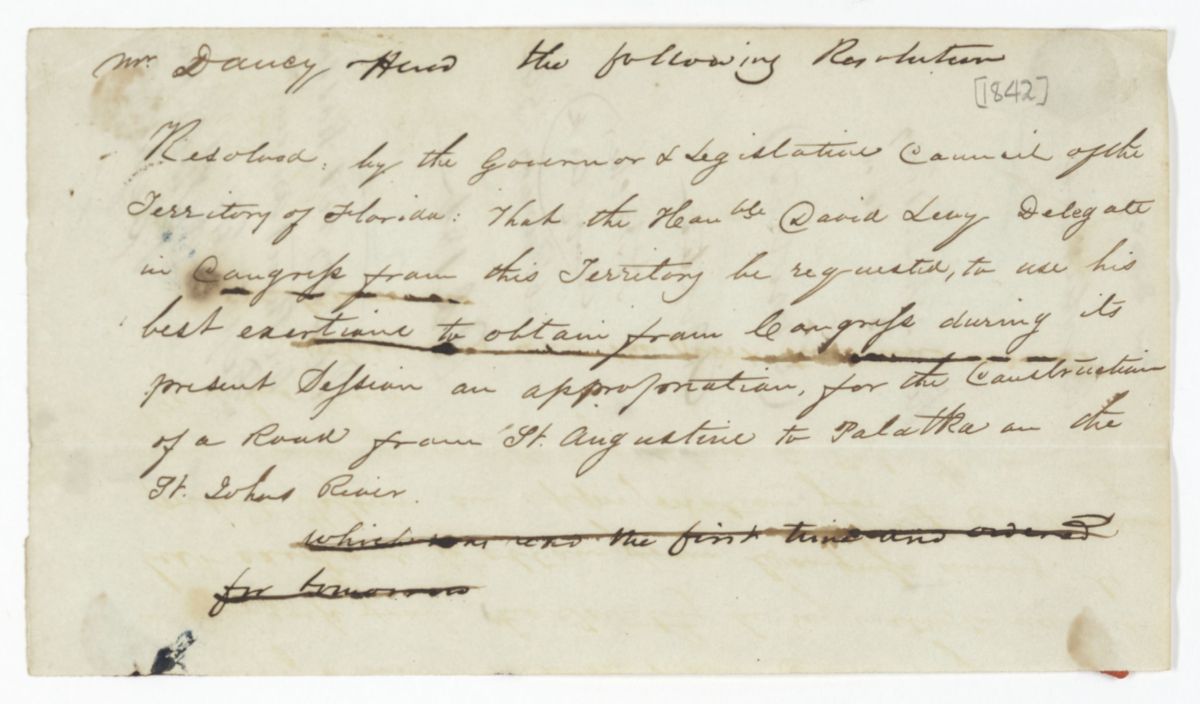 Mr. Dancy the following Resolution
[1842]
Resolved: by the Governor & Legislative Council of the
Territory of Florida: That the Honble David Levy Delegate
in Congress from this Territory be requested, to use his
best exertions to obtain from Congress during its
present Session an appropriation, for the Construction
of a Road from St. Augustine to Palatka on the
St. Johns River.
which was read the first time and ordered
for tomorrow